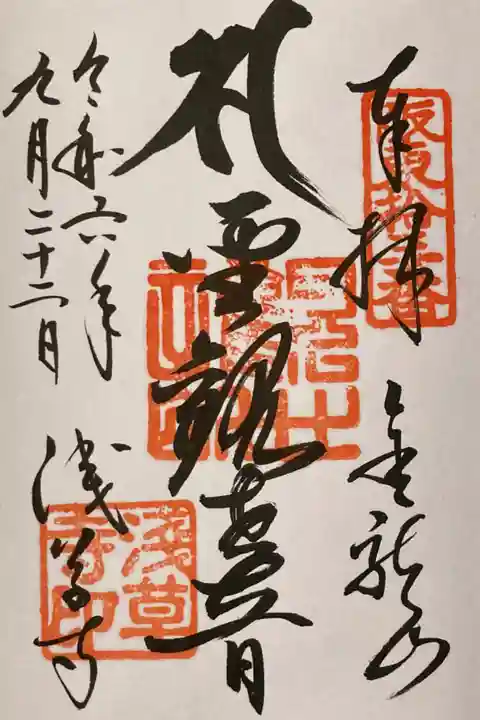 奉拝
金龍山
坂東拾三番
聖観世音
令和六年
九月二十二日
浅草寺
浅草
寺印